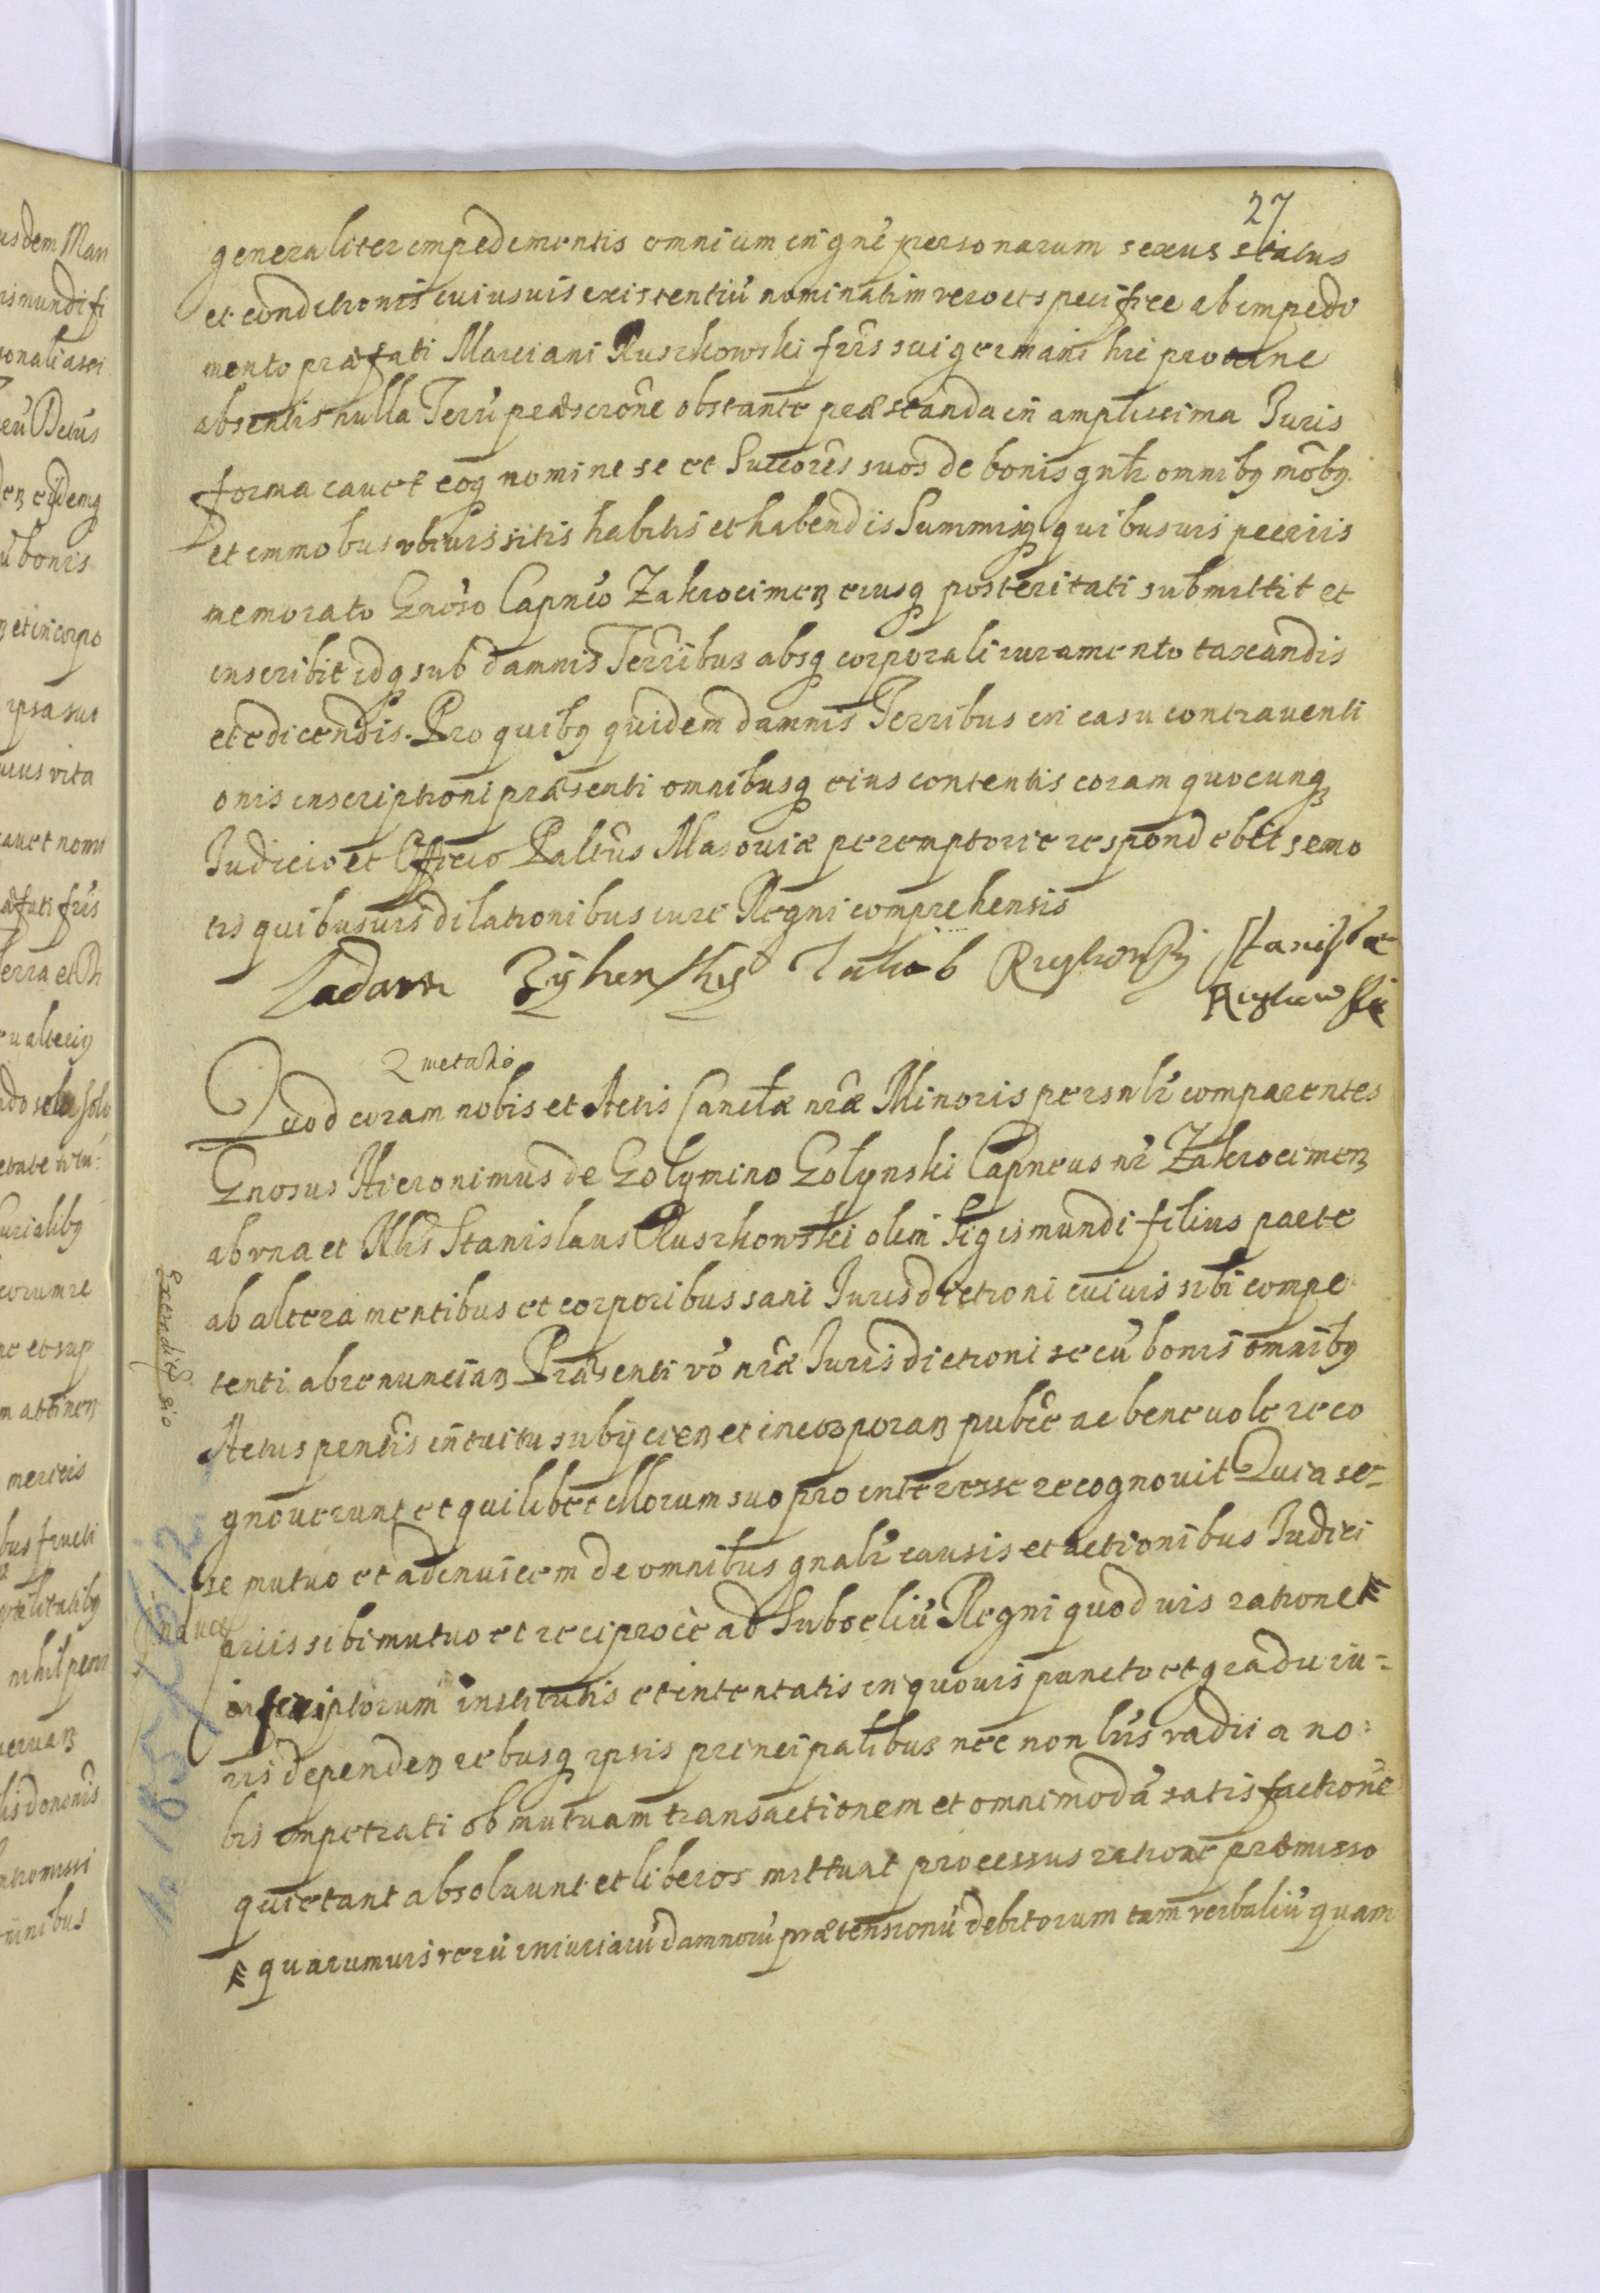 27
generaliter impedimentis omnium in gñe personarum sexus status
et conditionis cuiusuis existentiũ nominatim vero et specifice ab impedi
mento præfati Marciani Ruszkowski frĩs sui germani hic pro tunc
absentis nulla Terrũ præscrõne obstante præstanda in amplissima Juris
forma cauet eoq nomine se et Succorẽs suos de bonis gnlr omnibq mõbq
et immobus vbiuis sitis habitis et habendis Summisq quibusuis pecciis
memorato Gnõso Capneõ Zakrocimen eiusq posteritati submittit et
inscribit idq sub damnis Terribus absq corporali iuramento taxandis
et edicendis. Pro quibq quidem damnis Terribus in casu contrauenti
onis inscriptioni præsenti omnibusq eius contentis coram quocunq
Judicio et Officio Paltũs Masouiæ peremptorie respondebit semo
tis quibusuis dilationibus iure Regni comprehensis
Jakub Ruszkowski Stanisław
Ruszkowski
Quod coram nobis et Actis Canclæ nræ Minoris persnlr comparentes
Gnosus Hieronimus de Golymino Golynski Capneus nr Zakrocimen
ab vna et Nblis Stanislaus Ruszkowski olim Sigismundi filius parte
ab altera mentibus et corporibus sani Jurisdictioni cuiuis sibi compe
tenti abrenuncian Præsenti võ nræ Jurisdictioni se cũ bonis omnibq
Actus pentĩs intuitu subijcien et incorporan publẽ ac beneuole reco
gnouerunt et quilibet illorum suo pro interesse recognouit Quia se
se mutuo et adinuicem de omnibus gnalr causis et actionibus Judici
ariis sibi mutuo et reciprocè ad Subseliũ Regni quoduis ratione
inscriptorum institutis et intentatis in quouis puncto et gradu iu-
ris dependen rebusq ipsis principalibus nec non lris vadii a no-
bis impetrati ob mutuam transactionem et omnimodã satisfactionẽ
quietant absoluunt et liberos mittunt processus ratione præmisso
quarumuis rerũ iniuriarũ damnorũ prætensionũ debitorum tam verbaliũ quam